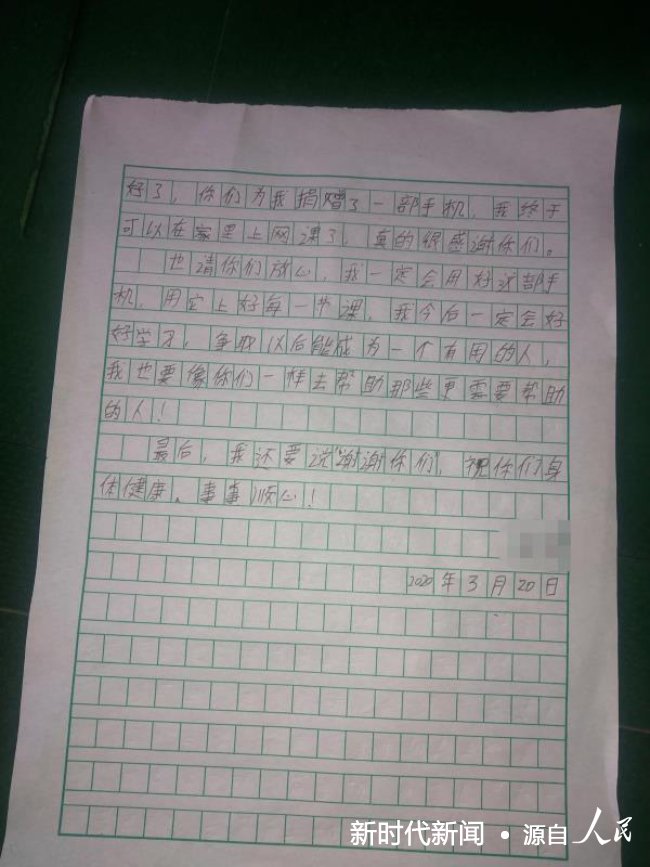 好了，你们为我捐赠了一部手机，我终于
可以在家里上网课了，真的很感谢你们。
也请你们放心，我一定会用好这部手
机，用它上好每一节课，我今后一定会好
好学习，争取以后能成为一个有用的人，
我也要像你们一样去帮助那些更需要帮助
的人！
最后，我还要说"谢谢你们"，祝你们身
体健康、事事顺心！
2020年3月20日
新时代新闻·源自人民